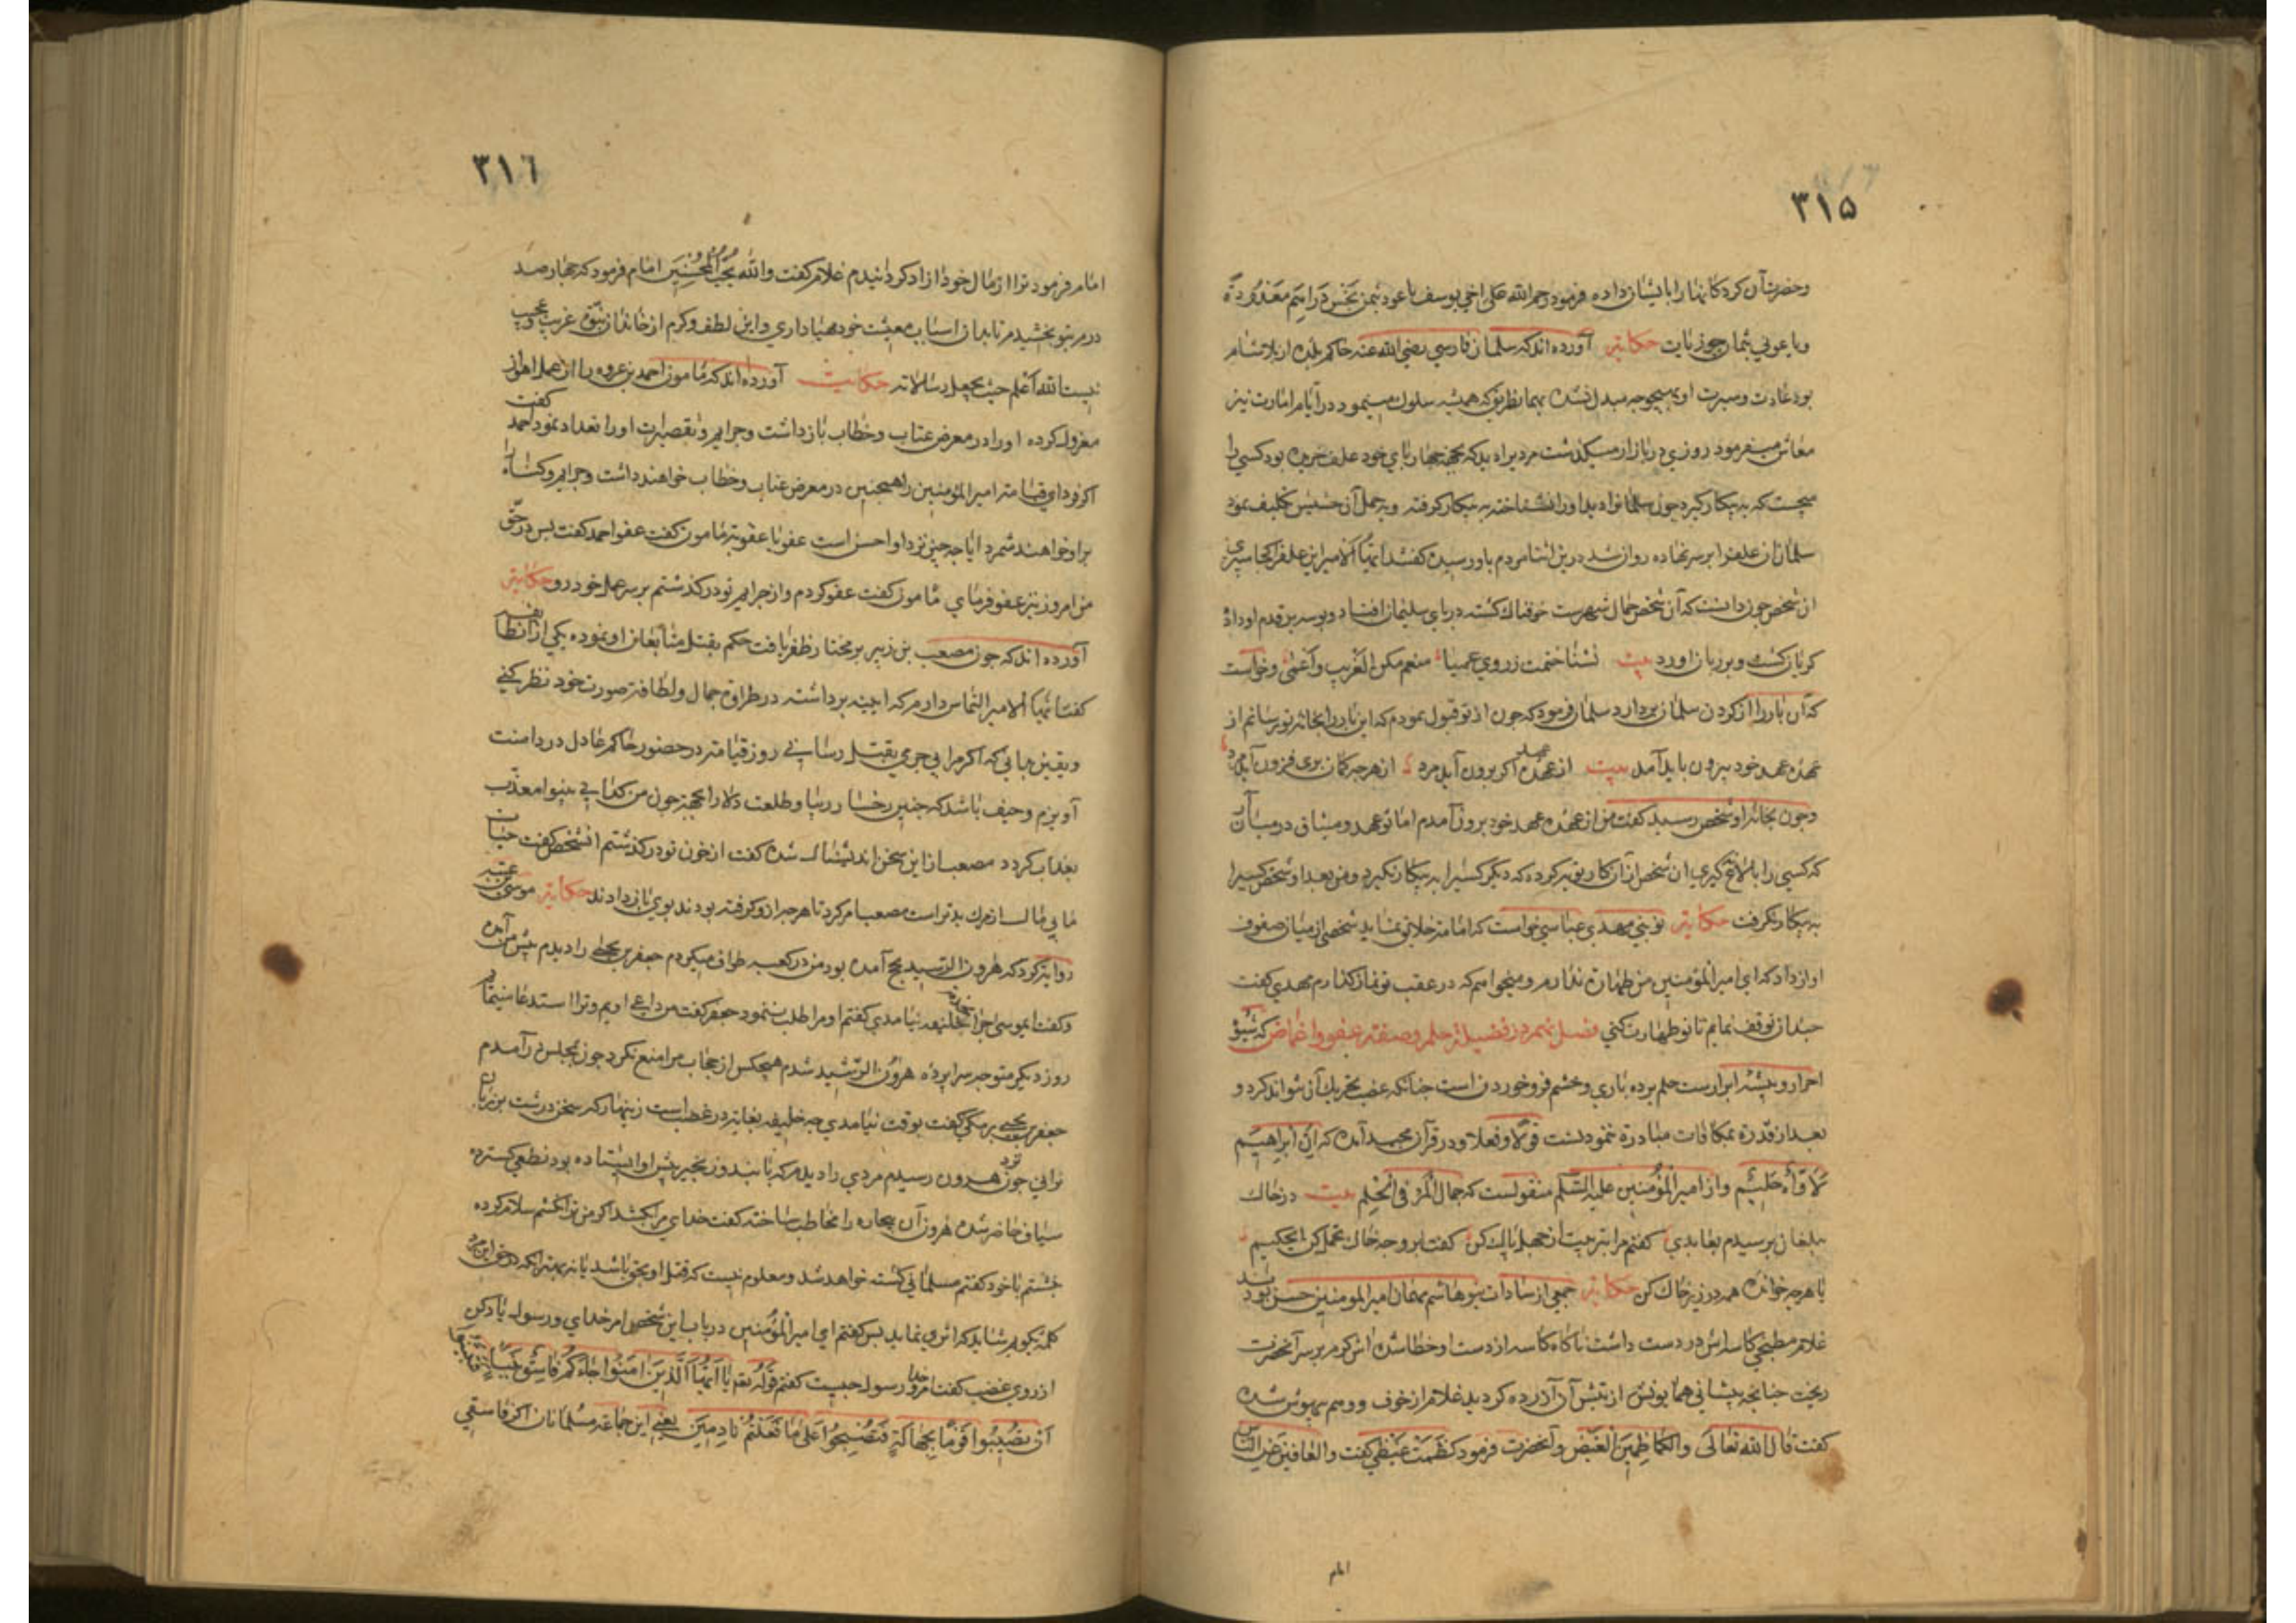 ٣١۵
وحضرت آن کرد کانها را بایشان داده فرمود رحم الله علی اخی یوسف باعوه بثمن بخس دراهم معدودة
حکایة آورده اند که سلمان فارسی رضی الله عنه حاکم بلده از بلاد شام
بود عادت و سیرت او بهیچوجه مبدل نشده بهمانطریق که همیشه سلوک مینمود در ایام امارت نیز
معاش میفرمود روزی در بازار میکذشت مردیرا دید که بجهة چهارپای خود علف خریده بود کسی را
میجست که به بیکار کیرد چون سلمانرا دید او را نشناخته به بیکار کرفته و بحمل آن حشیش تکلیف نمود
سلمان آن علف را بر سر نهاده روان شد درین اثنا مردم باو رسیده کفتند ایها الامیر این علف را کجا میبری
آن شخص چون دانست که آن شخص حمال شهر است خوفناک کشته در پای سلیمان افتاد و بوسه بر قدم او داد
کریان کشت و بر زبان اورد بیت نشناختمت ز روی عمیا منعم مکن الغریب و اعمی و خواست
که آن بار را از کردن سلمان بردارد سلمان فرمود که چون از تو قبول نمودم که این بار را بخانه تو رسانم از
عهده عهد خود بیرون باید آمد بیت از عهده عهد اکر برون آید مرد از هر چه کمان بری فزون آید مرد
و چون بخانه او شخص رسید کفت من از عهده عهد خود برون آمدم اما تو عهد و میثاق در میان آر
که کسی را بالاغ نکیری ان شخص از آن کار توبه کرده که دیکر کسیرا به بیکار نکیرد و من بعد او شخص کسیرا
به بیکار نکرفت حکایة نوبتی مهدی عباسی خواست که امامت خلایق نماید شخصی از میان صفوف
اواز داد که ای امیر المؤمنین من طهارت ندارم و میخواهم که در عقب تو نماز کذارم مهدی کفت
چندان توقف نمایم تا تو طهارت کنی فصل نهم در فضیلة حلم و صفت عفو و اغماض که شیوه
احرار و پیشه ابرارست حلم برده باری و خشم فرو خوردن است چنانکه غضب تحریک آن نتواند کرد و
بعد از قدرة بمکافات مبادرة ننمودنست قولا و فعلا و در قرآن مجید آمده که ان ابراهیم
لاواه حلیم و از امیر المؤمنین علیه السلم منقولست که جمال المرء فی الحلم بیت در خاک
بیلقان برسیدم بعابدی کفتم مرا بتربیت از جهل پاک کن کفتا برو چو خاک تحمل کن ای حکیم
یا هر چه خوانده همه در زیر خاک کن حکایة جمعی از سادات بنو هاشم مهمان امیر المومنین حسن بودند
غلام مطبخی کاسه اش در دست داشت ناکاه کاسه از دست او خطا شده اش کرم بر سر آنحضرت
ریخت چنانچه پیشانی همایونش از تپش آن آزرده کردید غلام از خوف و وهم بیهوش شده
کفت قال الله تعالی والکاظمین الغیظ و آنحضرت فرمود کظمت غیظی کفت والعافین عن الناس
امام
٣١٦
امام فرمود ترا از مال خود ازاد کردانیدم غلام کفت والله یحب المحسنین امام فرمود که چهار صد
درم بتو بخشیدم تا بدان اسباب معیشت خود مهیا داری و این لطف و کرم از خاندان نبوة غریب و عجیب
نیست الله اعلم حیث یجعل رسالاته حکایت آورده اند که مامون احمد بن عروه را از عمل اهواز
معزول کرده او را در معرض عتاب و خطاب باز داشت و جرایم و تقصیرات او را تعداد نمود احمد کفت
اکر فردای قیامت امیر المؤمنین را همچنین در معرض عتاب و خطاب خواهند داشت و جرایم و کناه را
بر او خواهند شمرد ایا چه چیز نزد او احسن است عفو یا عقوبة مامون کفت عفو احمد کفت پس در حق
من امروز نیز عفو فرمای مامون کفت عفو کردم و از جرایم تو در کذشتم بر سر عمل خود رو حکایة
آورده اند که چون مصعب بن زبیر بر مختار ظفر یافت حکم بقتل متابعان او نموده یکی از انطایفه
کفت ایها الامیر التماس دارم که ایینه برداشته در طراوة جمال و لطافة صورت خود نظر کنی
و یقین بدانی که اکر مرا بی جرمی بقتل رسانی روز قیامة در حضور حاکم عادل در دامنت
آویزم و حیف باشد که چنین رخسار زیبا و طلعت دلارا بجهة چون من کدایی بینوا معذب
بعذاب کردد مصعب از این سخن اندیشناک شده کفت از خون تو در کذشتم انشخص کفت حیات
مابی مال از مرک بدتر است مصعب امر کرد تا هر چه از و کرفته بودند بوی باز دادند حکایة موسی بن عتبه
روایة کرد که هرون الرشید بحج آمده بود من در کعبه طواف میکردم جعفر بن یحیی را دیدم پیش من آمده
و کفت ای موسی چرا بخدمة خلیفه نیامدی کفتم او مرا طلب ننمود جعفر کفت من داعی اویم و ترا استدعا مینماید
روز دیکر متوجه سراپرده هرون الرشید شدم هیچکس از حجاب مرا منع نکرد چون بمجلس در آمدم
جعفر بن یحیی برمکی کفت بوقت نیامدی چه خلیفه بغایة در غضب است زینهار که سخن درشت بر زبان
نرانی چون نزد هرون رسیدم مردی را دیدم که با بند و زنجیر پیش او ایستاده بود نطعی کسترده
سیاف حاضر شده هرون آن بیچاره را مخاطب ساخته کفت خدای مرا بکشد اکر من ترا نکشم سلام کرده
بنشستم با خود کفتم مسلمانی کشته خواهد شد و معلوم نیست که قتل او بحق باشد یا نه بهتر انکه در حق این مرد
کلمه بکویم شاید که اثری نماید پس کفتم ای امیر المؤمنین در باب این شخص امر خدای و رسول یاد کن
از روی غضب کفت امر خدا و رسول چیست کفتم قوله تع یا ایها الذین امنوا ان جاءکم فاسق بنبإ فتبینوا
ان تصیبوا قوما بجهالة فتصبحوا علی ما فعلتم نادمین یعنی این جماعة مسلمانان اکر فاسقی